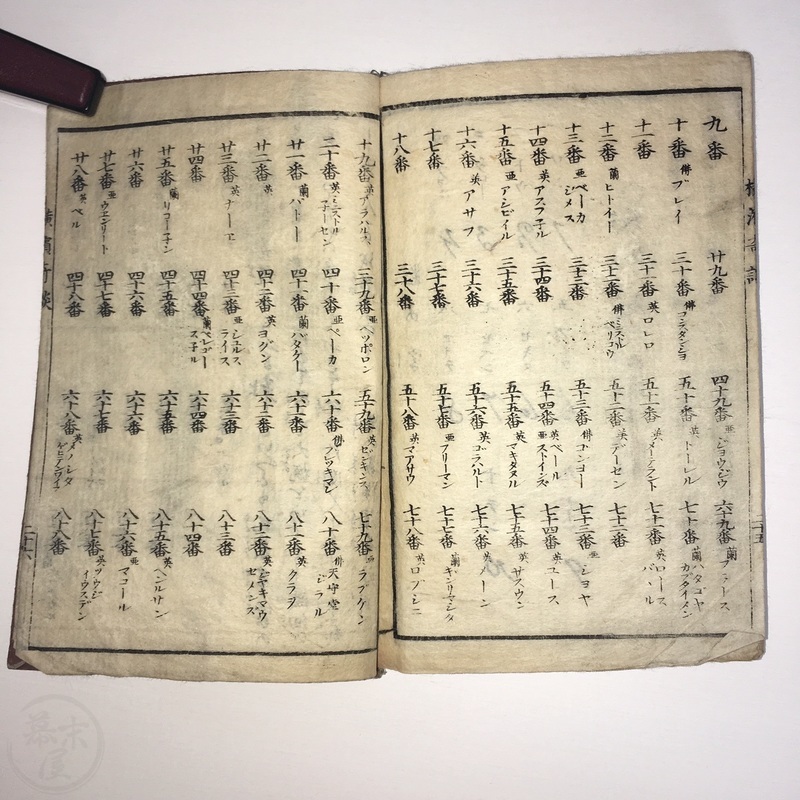 九番
十番 佛 ブレイ
十一番
十二番 蘭 ヒトイー
十三番 亜 ベーカ ジメス
十四番 英 アスフ子ル
十五番 亜 アシビイル
十六番 英 アサフ
十七番
十八番
十九番 英 アラハルス
二十番 英 ミニストル
廿一番 蘭 バトー
廿二番 英
廿三番 英 ナーヱ
廿四番
廿五番 蘭 リコー子ン
廿六番
廿七番 亜 ウエンリート
廿八番 英 ベル
廿九番
三十番 佛
三十一番 英 ロレロ
三十二番 佛 ミニストル ベリコウ
三十三番
三十四番
三十五番
三十六番
三十七番
三十八番
三十九番 亜 ヘツボロン
四十番 亜 ベーカ
四十一番 蘭 ハタケー
四十二番 英 ヨグン
四十三番 亜 シェルス ライス
四十四番 蘭 ベレゴー ス子ル
四十五番
四十六番
四十七番
四十八番
四十九番 亜 ショウジウ
五十番 英 トーレル
五十一番 英 メーテラント
五十二番 英 デーセン
五十三番 佛 ゴンヨー
五十四番 英 ベール 亜 ストインズ
五十五番 英 マキダヌル
五十六番 英 ゴラハルト
五十七番 亜 フリーマン
五十八番 英 マアサウ
五十九番 英 センキンス
六十番 佛 フレッキマン
六十一番
六十二番
六十三番
六十四番
六十五番
六十六番
六十七番
六十八番 英
六十九番 蘭 ファース
七十番 蘭 ハタゴヤ カブタイメン
七十一番 英 ロース バール
七十二番
七十三番 亜 ショヤ
七十四番 英 ユース
七十五番 英 サスウン
七十六番 英
七十七番 蘭 キンリマンタ
七十八番 英 ロブシニ
七十九番 亜 ラブケン
八十番 佛 天守堂 ジラル
八十一番 英 クラヲ
八十二番 英 ジヤキマウ セメンズ
八十三番
八十四番
八十五番 英 ヘンルサン
八十六番 英 マコール
八十七番 英 ツウジ イウスデン
八十八番
横濱奇談
二十五
横濱奇談
二十六
幕末屋